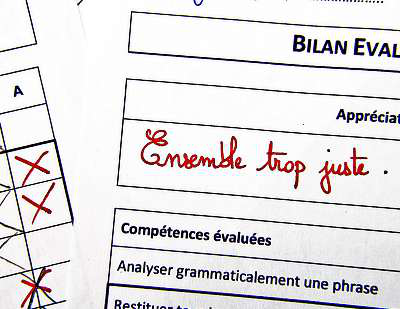 BILAN EVAL
A
Appréciat
Ensemble trop juste .
Compétences évaluées
Analyser grammaticalement une phrase
Restituer